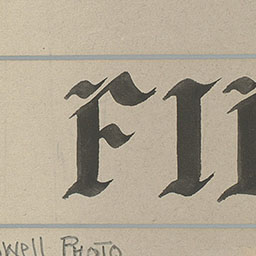 FI
well PHOTO